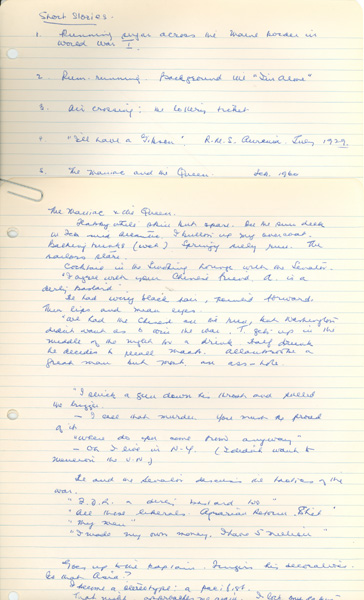 Short Stories.
1. Running sugar across the Maine border in
World War I.
2. Rum-running. Background the "I'm Alone"
3. Air crossing: the lottery ticket
4. "I'll have a Gibson". R.M.S. Aurania July 1939.
5. The Maniac and the Queen. Feb. 1960
The Maniac & the Queen.
white but spare. On the sun deck
I button up my overcoat.
Bathing trunks (wet) Springy The
sailors stare.
Cocktail in the Smoking Lounge with the Senator.
"I agree with your Chinese friend, A. is a
dirty bastard".
He had black hair, forward.
Thin lips and mean eyes.
"We had the Chinese but Washington
didn't want us to win the war. I get up in the
middle of the night for a drink. Half drunk
he decides to recall Mac
great man but an ass-hole.
"I stuck a gun down his throat and pulled
the trigger.
- I call that murder. You must be proud
of it
"Where do you come from anyway"
- Oh I live in N.Y. (I didn't want to
mention the U.N.)
He and the Senator discuss the of the
war.
"F.D.R. a dirty bastard too"
"All those liberals.
"My man"
"I made my own money. I have 5 million"
Goes up to the Captain. his decorations.
Is that
I become a stereotype: a pacifist.
That night again. I lost